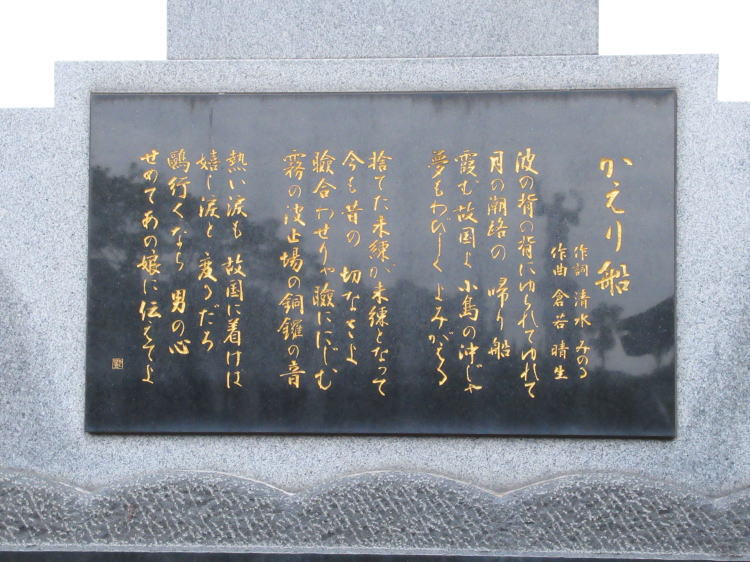 かえり船
作詞 清水 みのる
作曲 倉若 晴生
波の背の背にゆられてゆれて
月の潮路の 帰り船
霞む故国よ 小島の沖じゃ
夢もわびしく よみがえる
捨てた未練が未練となって
今も昔の 切なさよ
瞼合わせりゃ瞼ににじむ
霧の波止場の銅鑼の音
熱い涙も 故国に着けば
嬉し涙と 変るだろ
鴎行くなら 男の心
せめてあの娘に伝えてよ